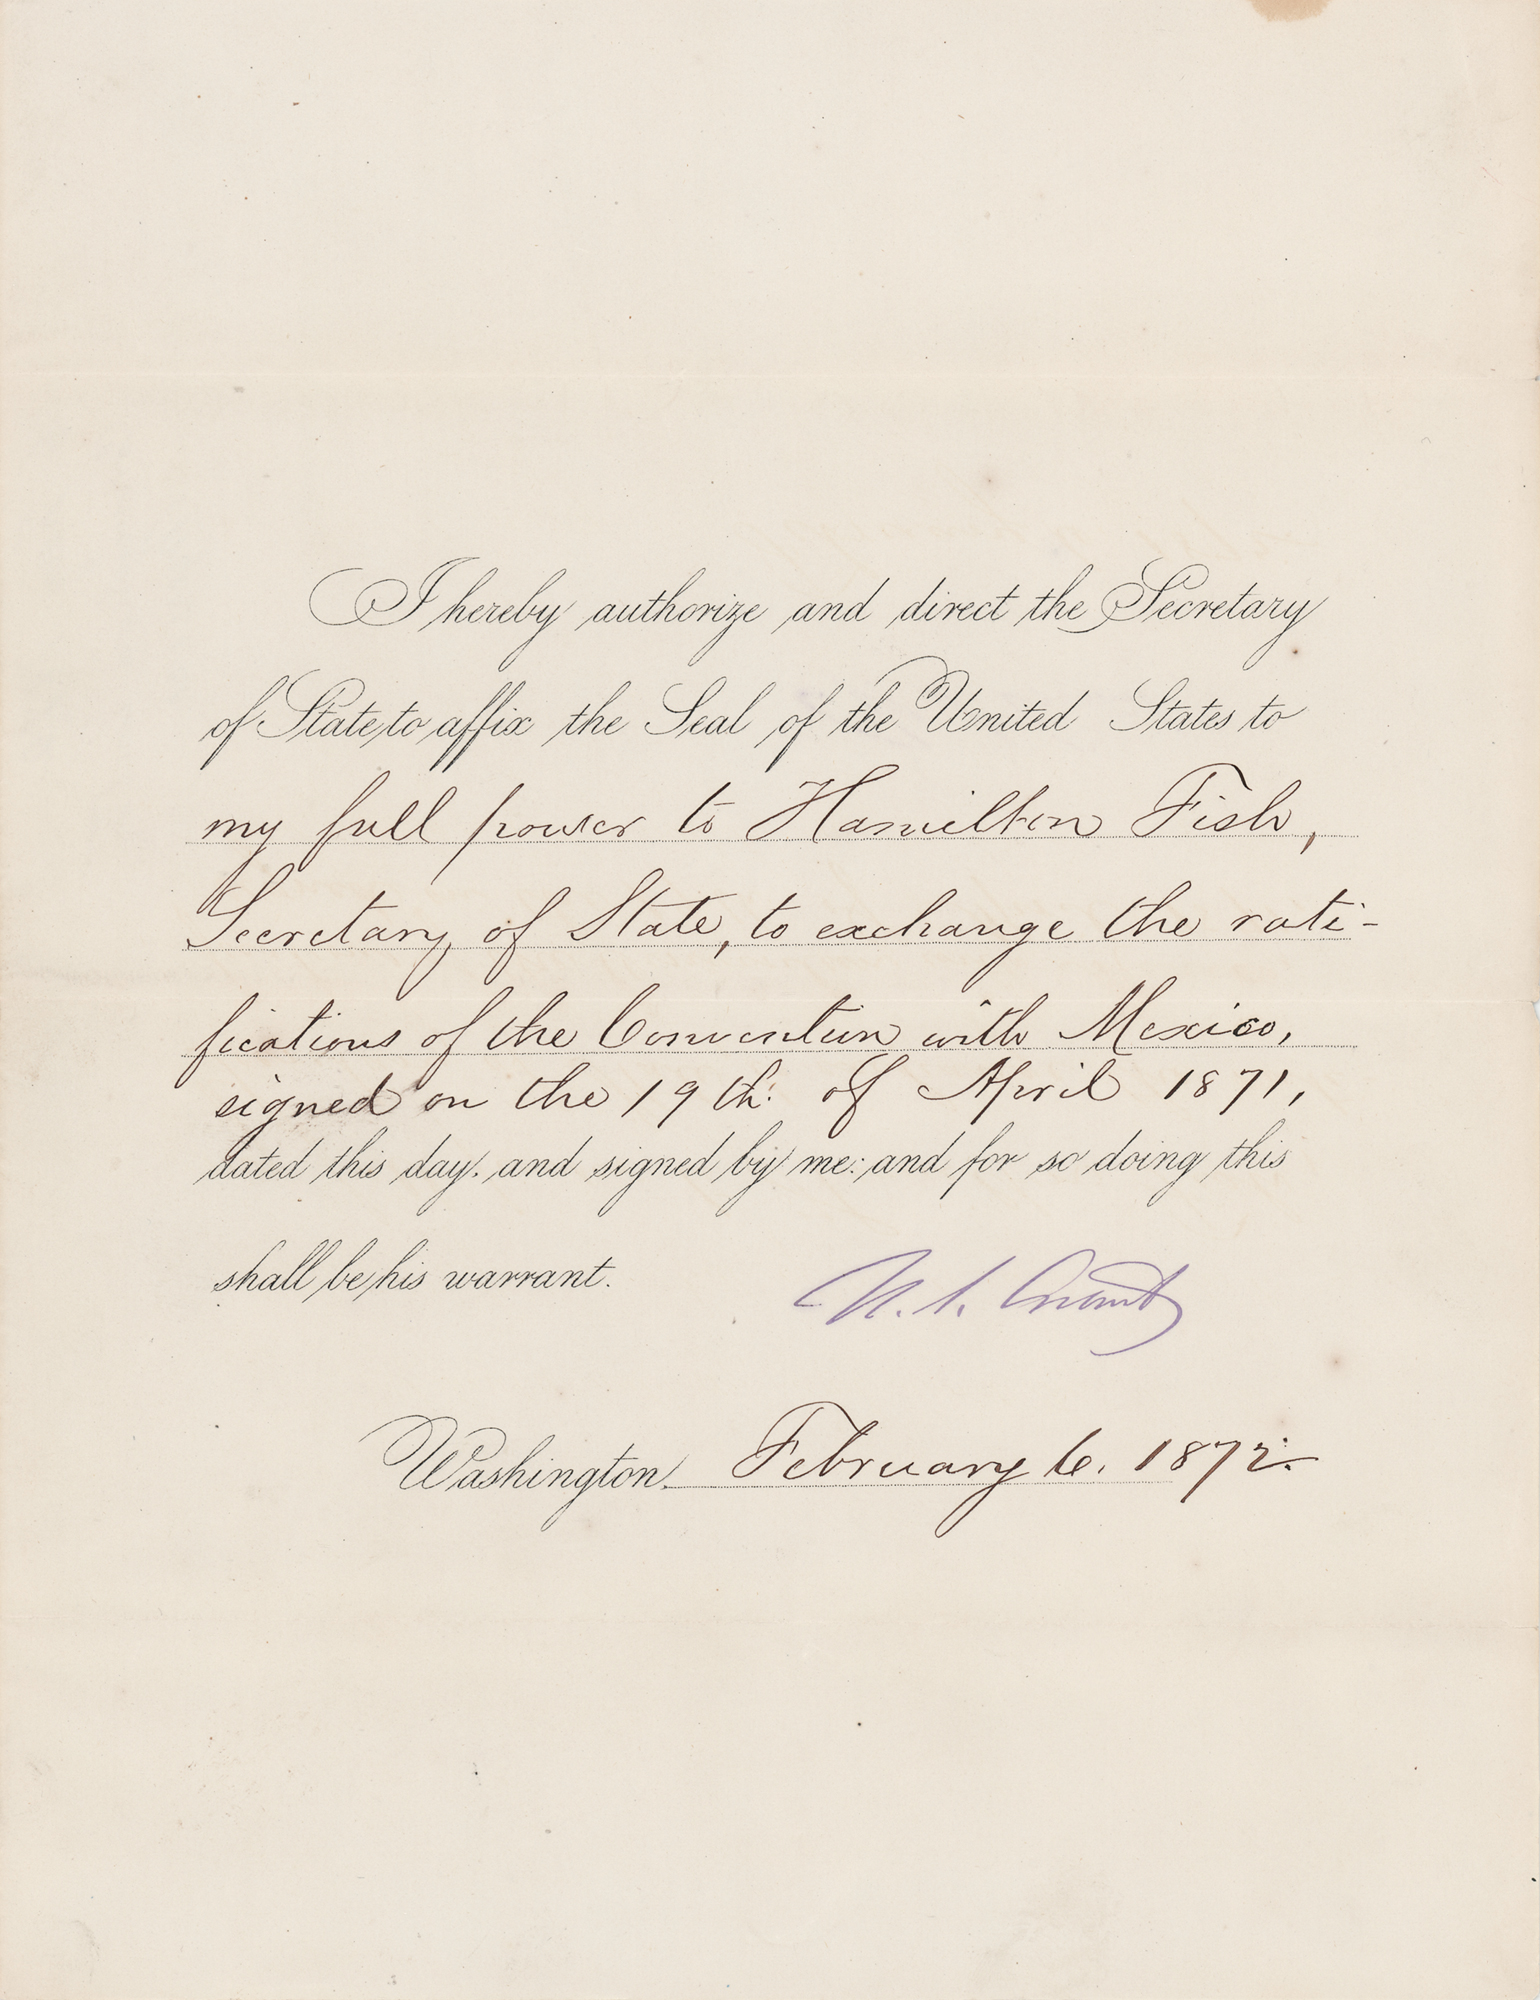 I hereby authorize and direct the Secretary
of State to affix the Seal of the United States to
my full power to Hamilton Fish,
Secretary of State, to exchange the rati-
fications of the Convention with Mexico,
signed on the 19th: of April 1871,
dated this day, and signed by me: and for so doing this
shall be his warrant.
U. S. Grant
Washington, February 6. 1872.